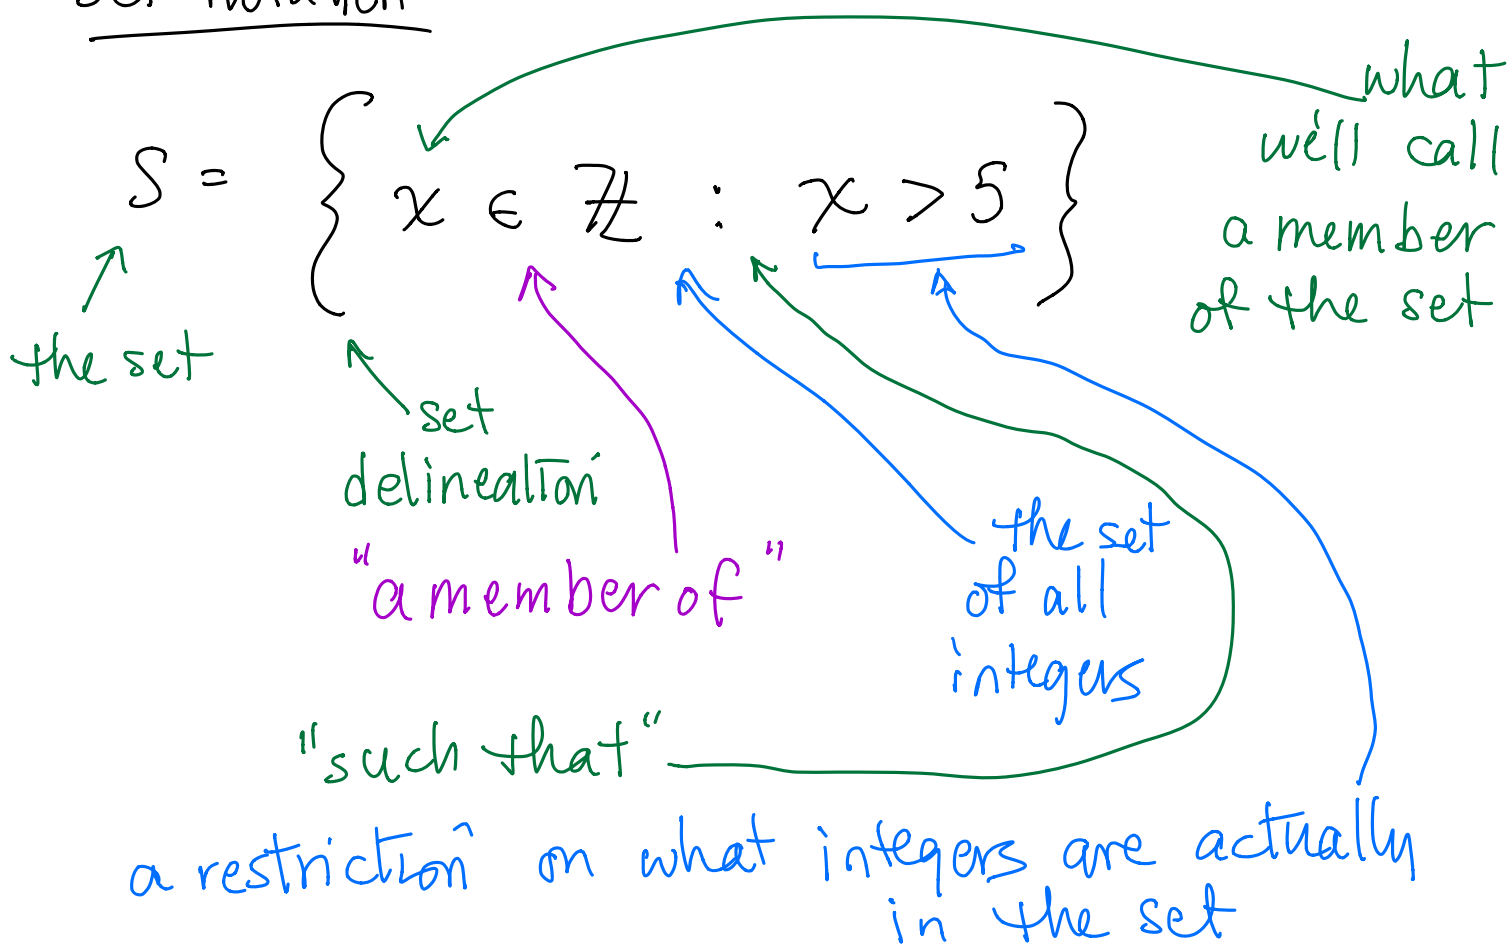 Set notation
S = { x ∈ ℤ : x > 5 }
what
we'll call
a member
of the set
the set
set
delineation
"a member of"
the set
of all
integers
"such that"
a restriction on what integers are actually
in the set